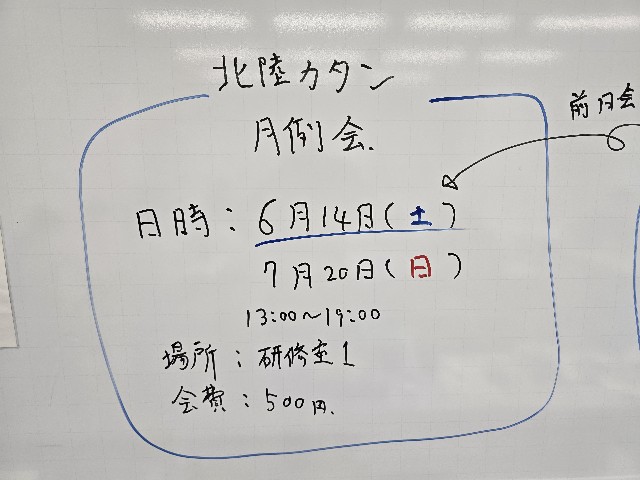 北陸カタン
月例会.
前日会
日時：6月14日(土)
7月20日(日)
13:00～19:00
場所：研修室1
会費：500円.